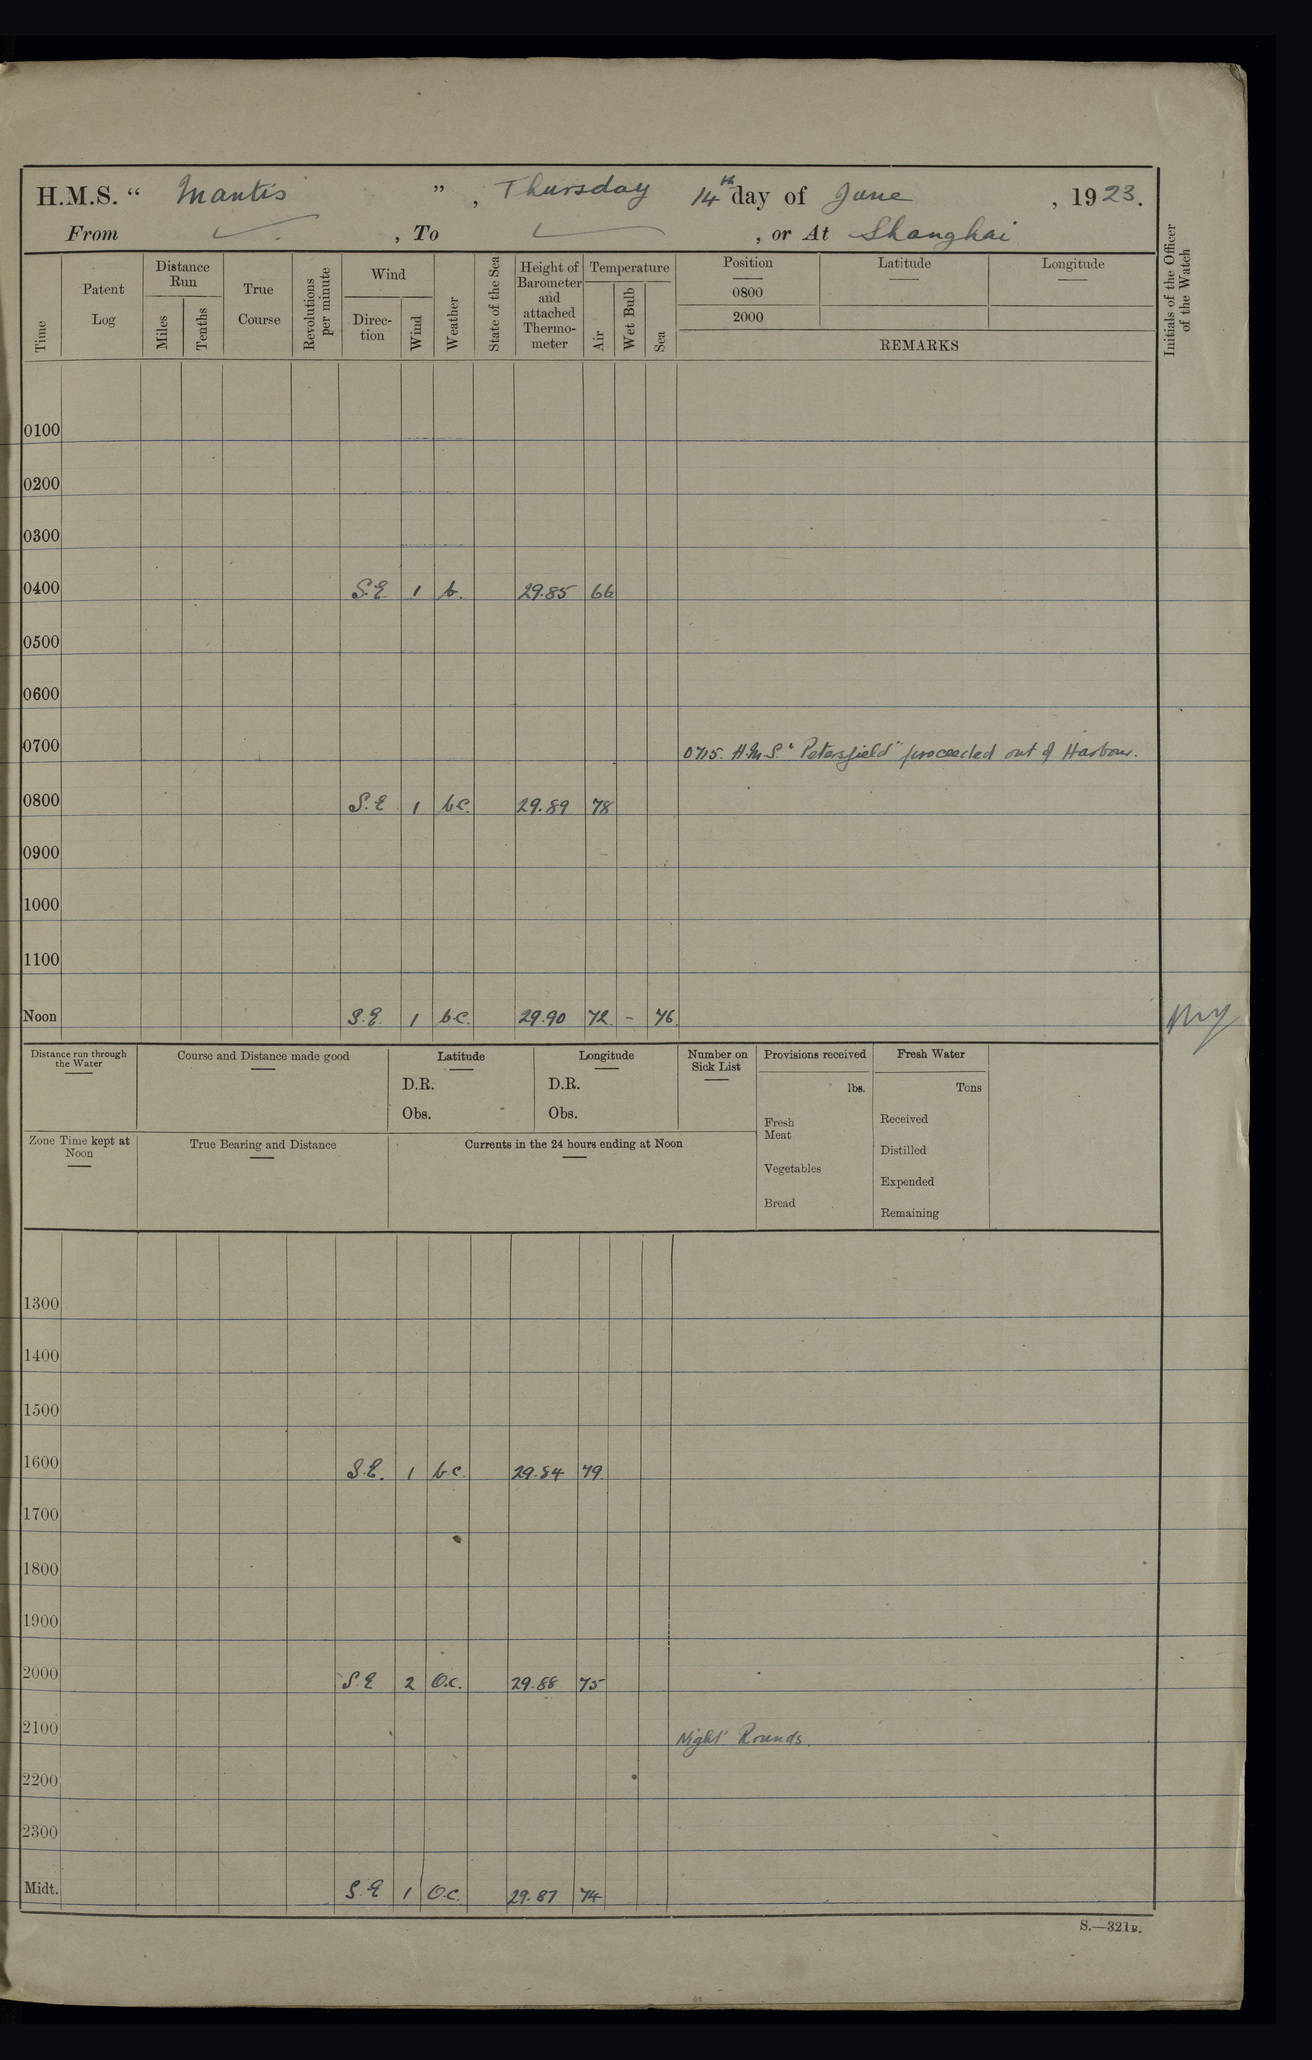 H.M.S. “ Mantis ” , Thursday 14th day of June , 1923.
From , To , or At Shanghai
Time
Patent Log
Distance Run
Miles
Tenths
True Course
Revolutions per minute
Wind
Direc-tion
Wind
Weather
State of the Sea
Height of Barometer and attached Thermo-meter
Temperature
Air
Wet Bulb
Sea
Position
0800
2000
Latitude
Longitude
REMARKS
Initials of the Officer of the Watch
0100
0200
0300
0400 S.E. 1 b. 29.85 66
0500
0600
0700 0715. H.M.S. "Petersfield" proceeded out of Harbour.
0800 S.E 1 bc. 29.89 78
0900
1000
1100
Noon S.E. 1 b.c. 29.90 72 - 76
Distance run through the Water
Course and Distance made good
Latitude
D.R.
Obs.
Longitude
D.R.
Obs.
Number on Sick List
Provisions received
lbs.
Fresh Meat
Vegetables
Bread
Fresh Water
Tons
Received
Distilled
Expended
Remaining
Zone Time kept at Noon
True Bearing and Distance
Currents in the 24 hours ending at Noon
1300
1400
1500
1600 S.E. 1 b.c. 29.84 79
1700
1800
1900
2000 S.E 2 O.c. 29.88 75
2100 Night Rounds.
2200
2300
Midt. S.E 1 O.c. 29.87 74
S.—321B.